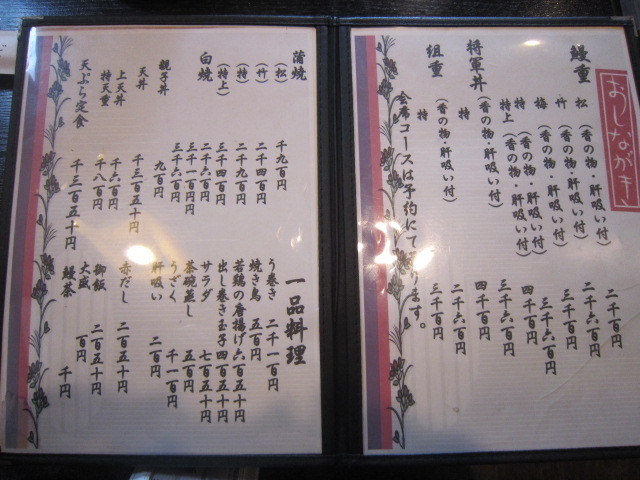 おしながき
鰻重 松 (香の物・肝吸い付) 二千百円
竹 (香の物・肝吸い付) 二千六百円
梅 (香の物・肝吸い付) 三千百円
特 (香の物・肝吸い付) 三千六百円
特上 (香の物・肝吸い付) 四千百円
将軍丼 (香の物・肝吸い付) 四千百円
特 二千六百円
組重 (香の物・肝吸い付)
特 三千百円
会席コースは予約にて
ります。
蒲焼 (松) 千九百円
(竹) 二千四百円
(特) 二千九百円
(特上) 三千四百円
白焼 二千六百円
三千百円
三千六百円
親子丼 九百円
天丼 千三百五十円
上天丼 千六百円
特天重 千八百円
天ぷら定食 千三百五十円
一品料理
う巻き 二千百円
焼き鳥 五百円
若鶏の唐揚げ 六百五十円
出し巻き玉子 四百五十円
サラダ 七百五十円
茶碗蒸し 五百円
うざく 千百円
肝吸い 二百円
赤だし 二百五十円
御飯 二百五十円
大盛 百円
鰻茶 千円